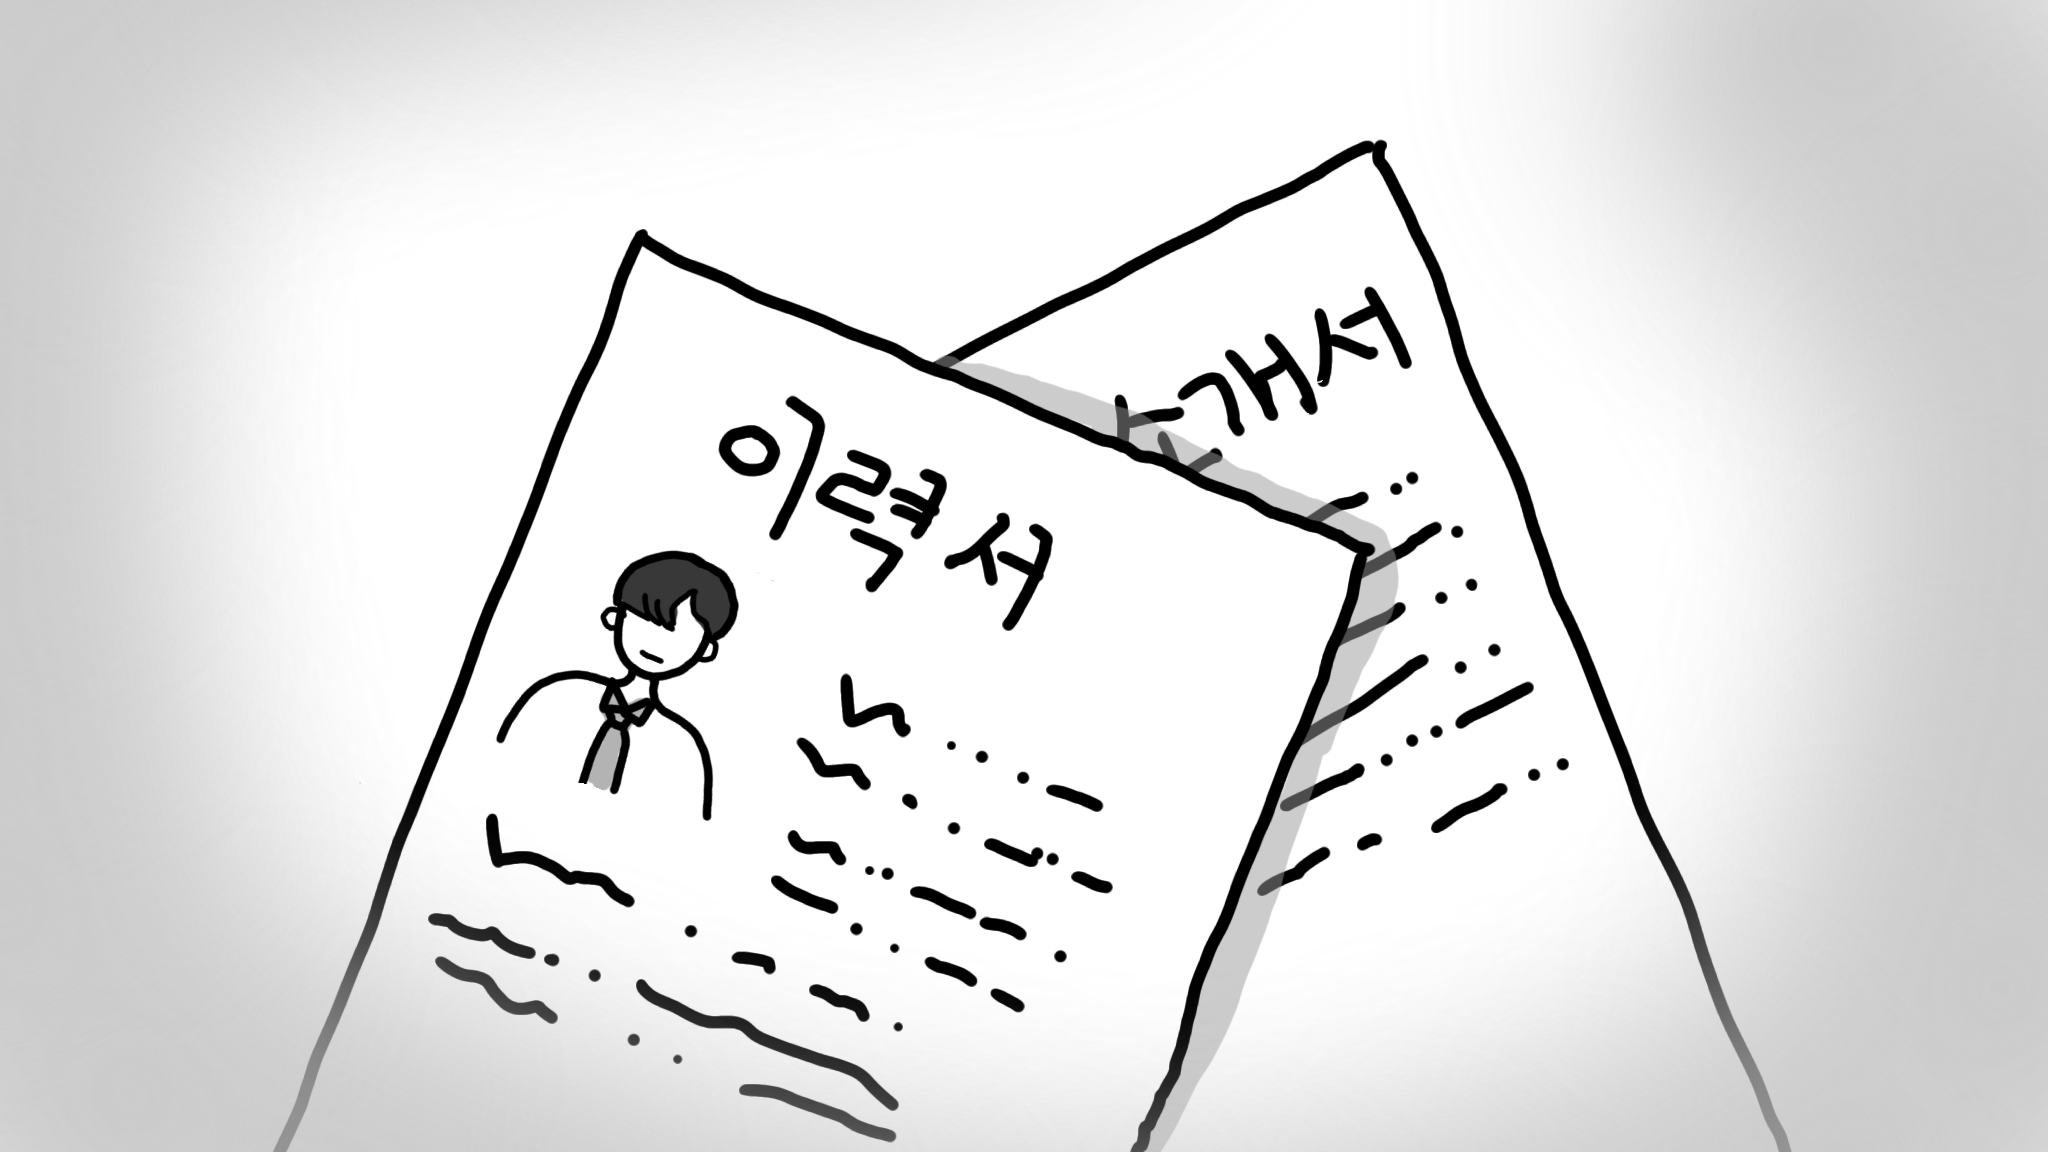 이력서
소개서